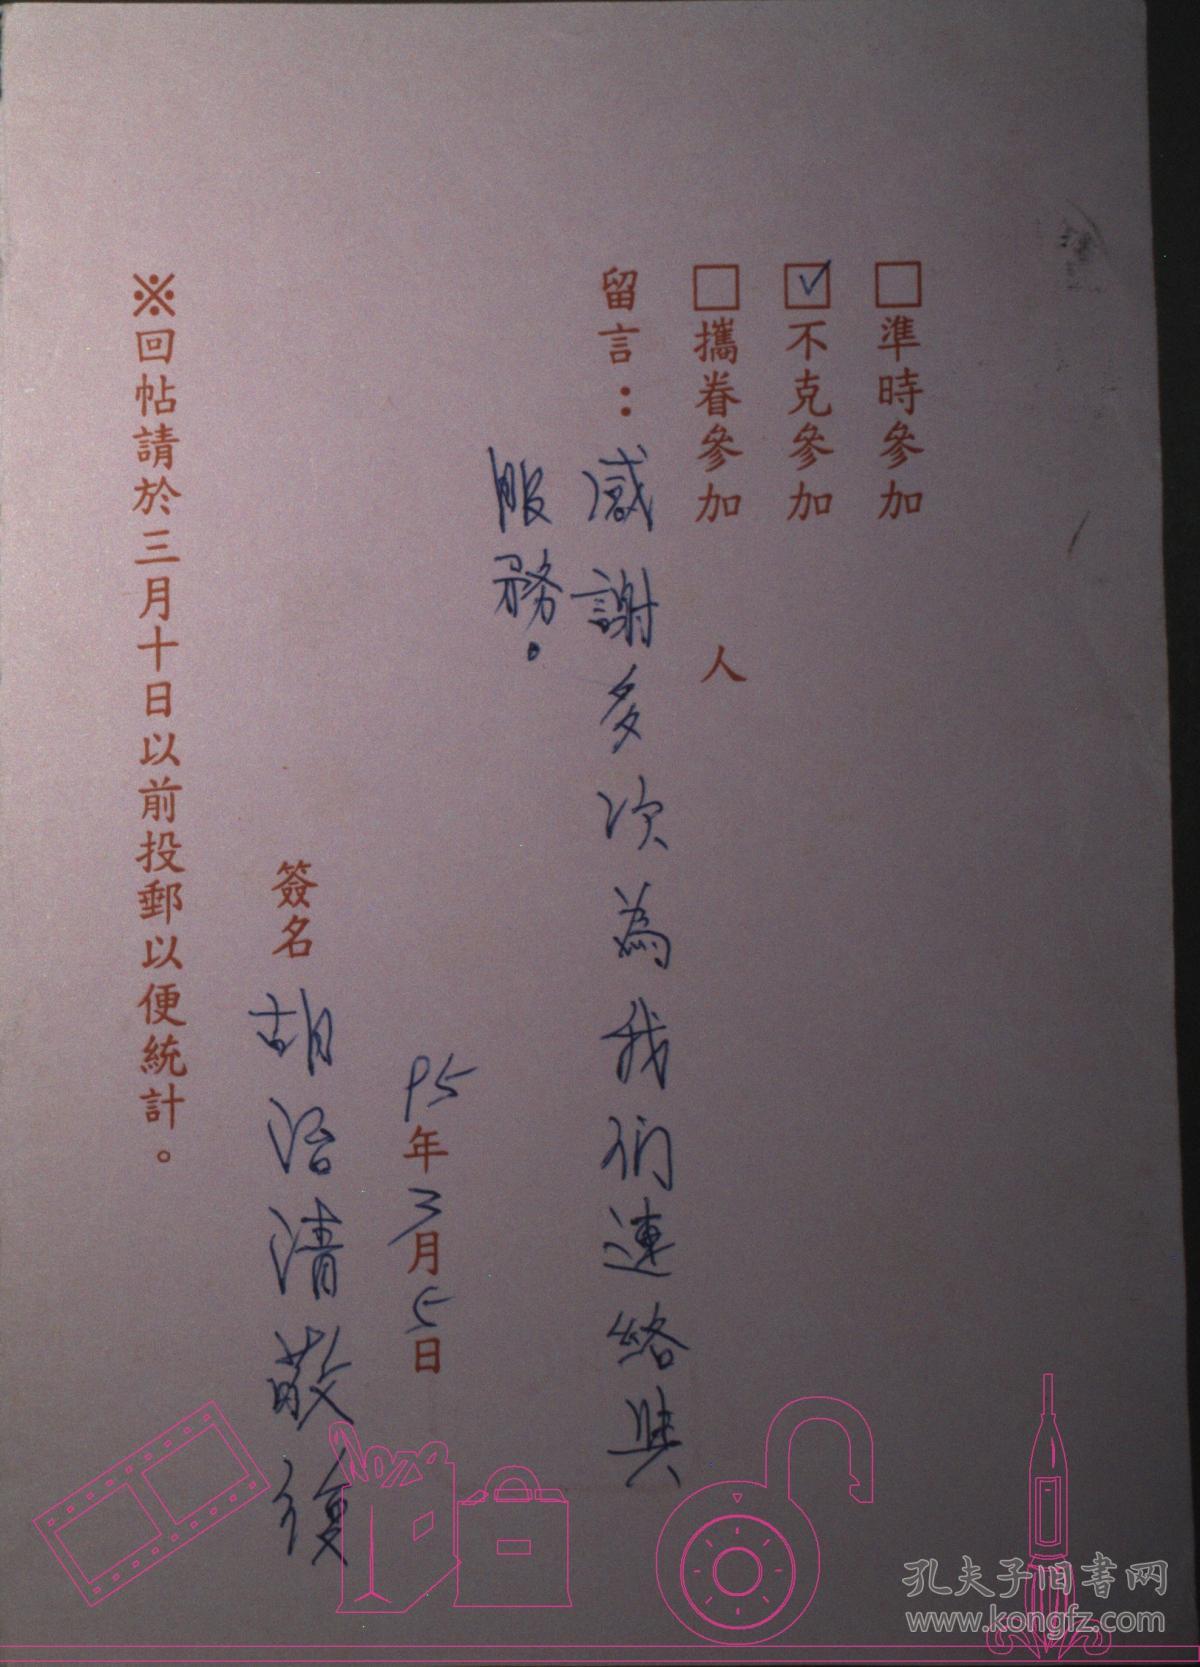 □準時參加
☑不克參加
□攜眷參加 人
留言：感謝多次為我們連絡與
服務。
95年3月5日
簽名 胡治清敬復
※回帖請於三月十日以前投郵以便統計。
孔夫子旧书网
www.kongfz.com